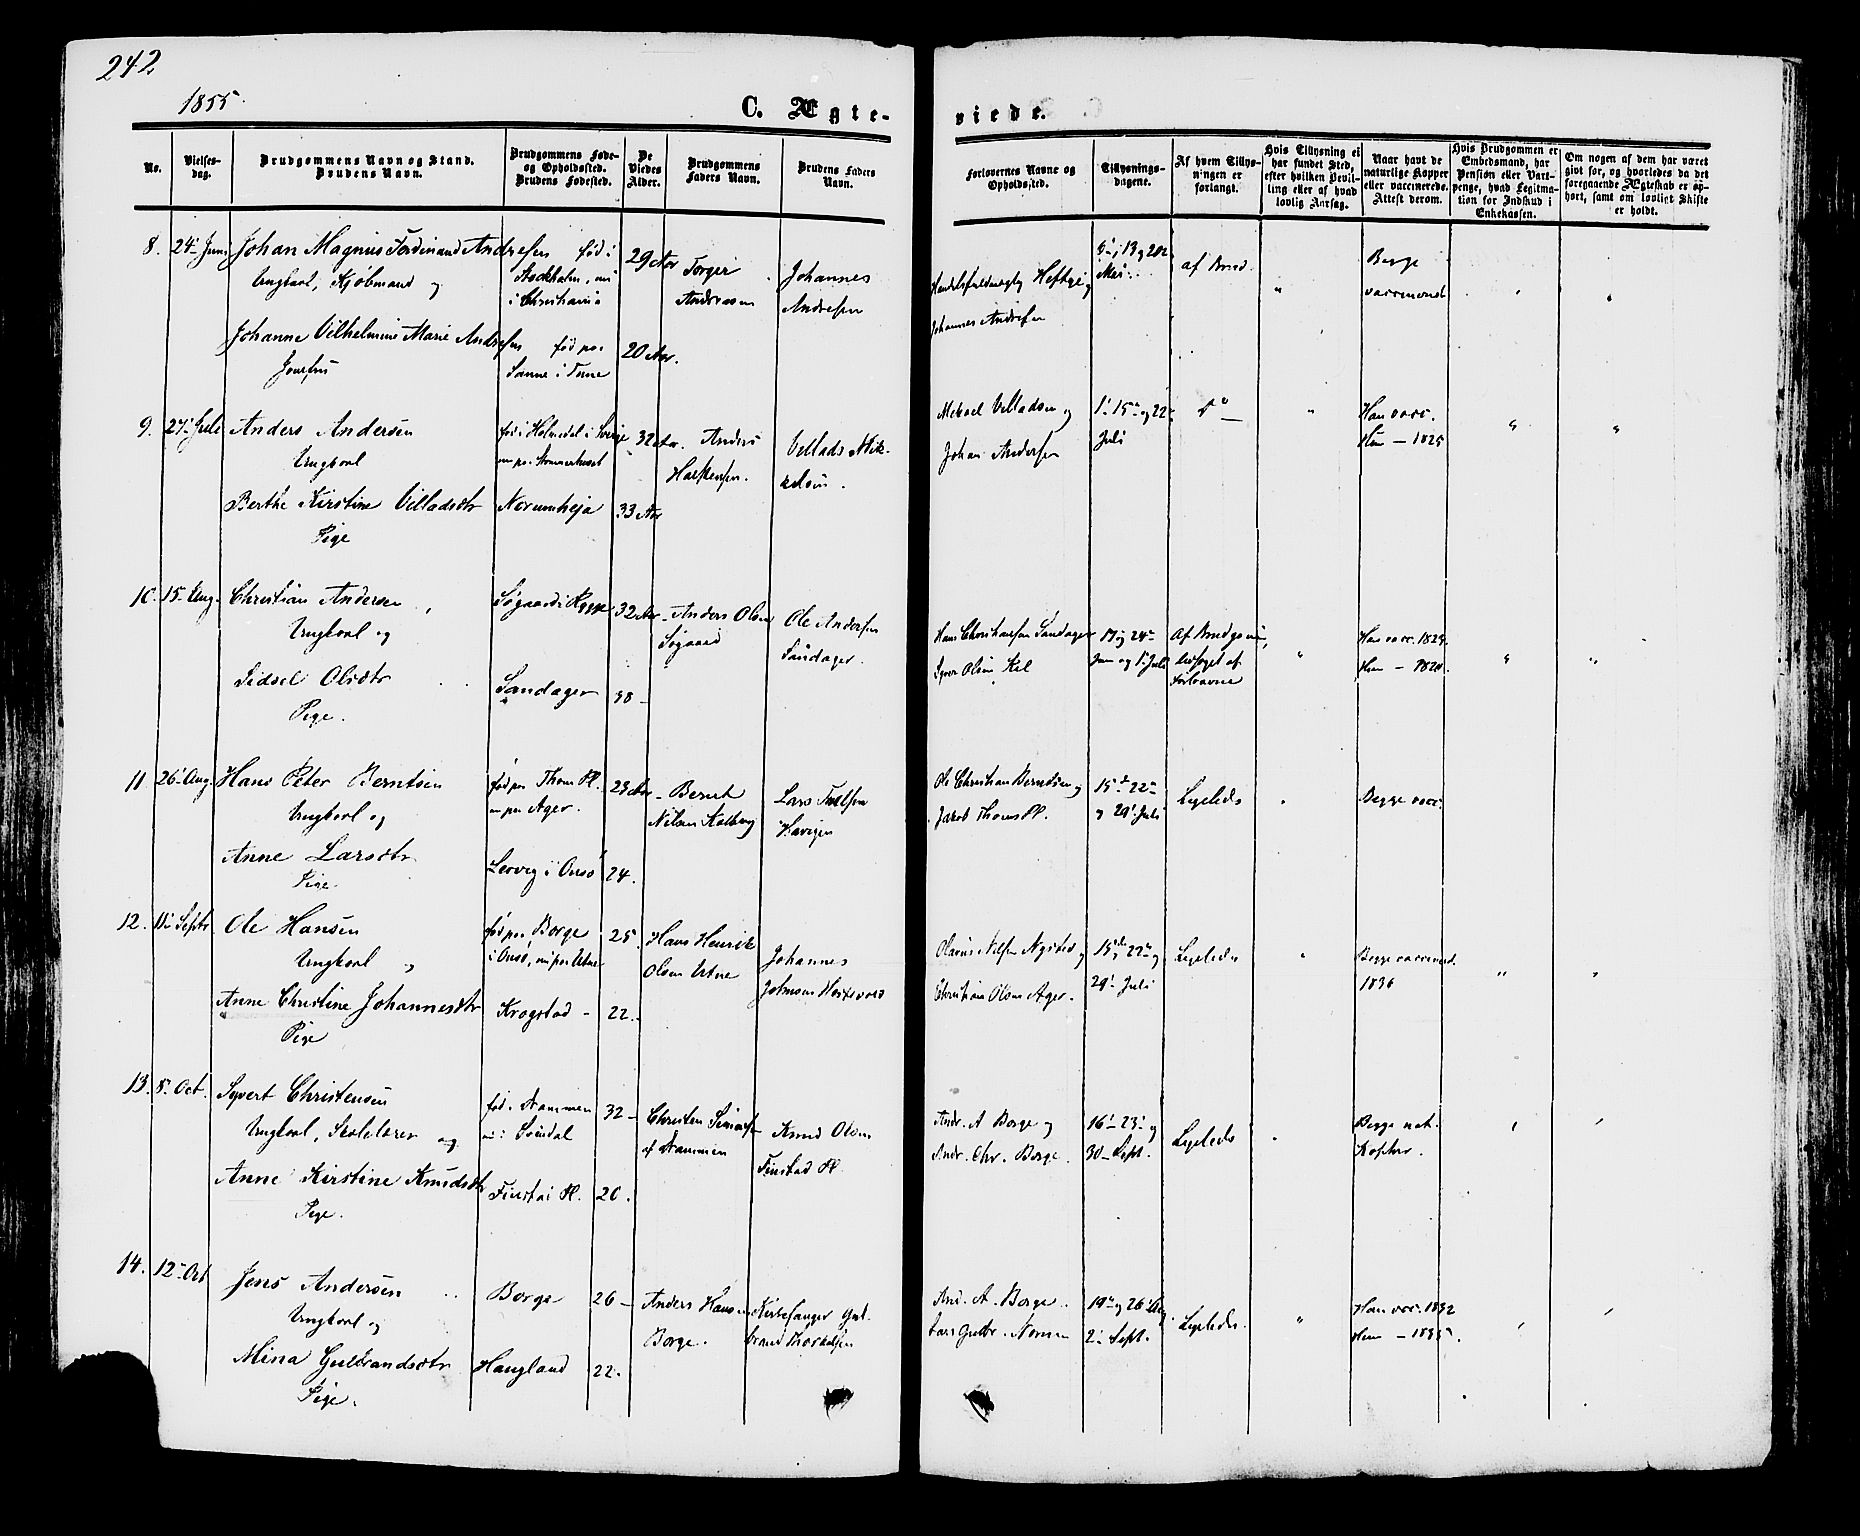 242
1855.
C. Ægte-
viede.
No.
Vielses-
dag.
Brudgommens Navn og Stand.
Brudens Navn.
Brudgommens Føde-
og Opholdssted.
Brudens Fødested.
De
Viedes
Alder.
Brudgommens
Faders Navn.
Brudens Faders
Navn.
Forlovernes Navne og
Opholdssted.
Tillysnings-
dagene.
Af hvem Tillys-
ningen er
forlangt.
Hvis Tillysning ei
har fundet Sted,
efter hvilken Bevil-
ling eller af hvad
lovlig Aarsag.
Naar havt de
naturlige Kopper
eller vaccinerede.
Attest derom.
Hvis Brudgommen er
Embedsmand, har
Pension eller Vart-
penge, hvad Legitima-
tion for Indskud i
Enkekassen.
Om nogen af dem har været
gift før, og hvorledes da det
foregaaende Ægteskab er op-
hørt, samt om lovligt Skifte
er holdt.
8. 24 Juni
Johan Magnus Ferdinand Andresen
Ungkarl, Kjøbmand og
født i
Stockholm, nu
i Christiania
29 Aar
Torger
Andreasen
Johannes
Andresen
Heftye og
Johannes Andresen
6, 13 og 20
Mai
af Brud.
Begge
vaccineret
Johanne Vilhelmine Marie Andresen
Sanne i Ferne
20 Aar.
9. 27 Juli
Anders Andersen
Ungkarl
fød i Holmedal i Sverige
32 Aar.
Anders
Villads Mik-
kelsen.
Mikael Villadsen og
Johan Andersen
1 15 og 22
Juli
Do
Han vacc.
Hun — 1825
Berthe Kirstine Villadsdtr
Pige
Norumheja
33 Aar
10. 15 Aug.
Christian Andersen
Ungkarl og
Søgaard i Rygge
32 Aar
Anders Olsen
Søgaard
Ole Andersen
Sandager.
Hans Christiansen Sandager
Syver Olsen Kil
17 og 24
Juni og 1 Juli
Af Brudgommen,
ledsaget af
Forloverne
Han vacc. 1829.
Hun — 1820.
Sidsel Olsdtr
Pige.
Sandager
38 —
11 26 Aug.
Hans Peter Berntsen
Ungkarl og
fød paa Thom Pl.
nu paa Ager.
23 Aar
Bernt
Nilsen Kolberg
Lars
Ole Christian Berntsen og
Jakob Thoms Pl.
15 22
og 29 Juli
Ligeledes
Begge vacc.
Anne Larsdtr
Pige.
Lervig i Onsø
24.
12. 11 Septr
Ole Hansen
Ungkarl og
fød paa Borge
i Onsø, nu paa Utne
25.
Hans Henrik
Olsen Utne
Johannes
Olsen Nygsted og
Christian Olsen Ager.
15de 22 og
29 Juli
Ligeledes
Begge vaccineret.
1836
Anne Christine Johannesdtr
Pige
Krogstad
22.
13. 8 Oct.
Syvert Christensen
Ungkarl, Skolelærer og
fød i Drammen
nu i
32 —
Christen Simonsen
af Drammen
Knud Olsen
Finstad Pl.
Andr. A Borge og
Andr. Chr. Borge.
16 23 og
30 Sept.
Ligeledes
Begge nat.
Kopper.
Anne Kirstine Knudsdtr
Pige.
Finstad Pl.
20.
14. 12 Oct
Jens Andersen
Ungkarl og
Borge
26 —
Anders Hansen
Borge.
Kirkesanger Gul-
brand Thorkelsen
And. A. Borge
Lars Gulbr.
19 og 26 Aug
2 Sept.
Ligeledes.
Han vacc. 1832
Hun — 1835.
Mina Gulbrandsdtr
Pige.
Haugland
22.